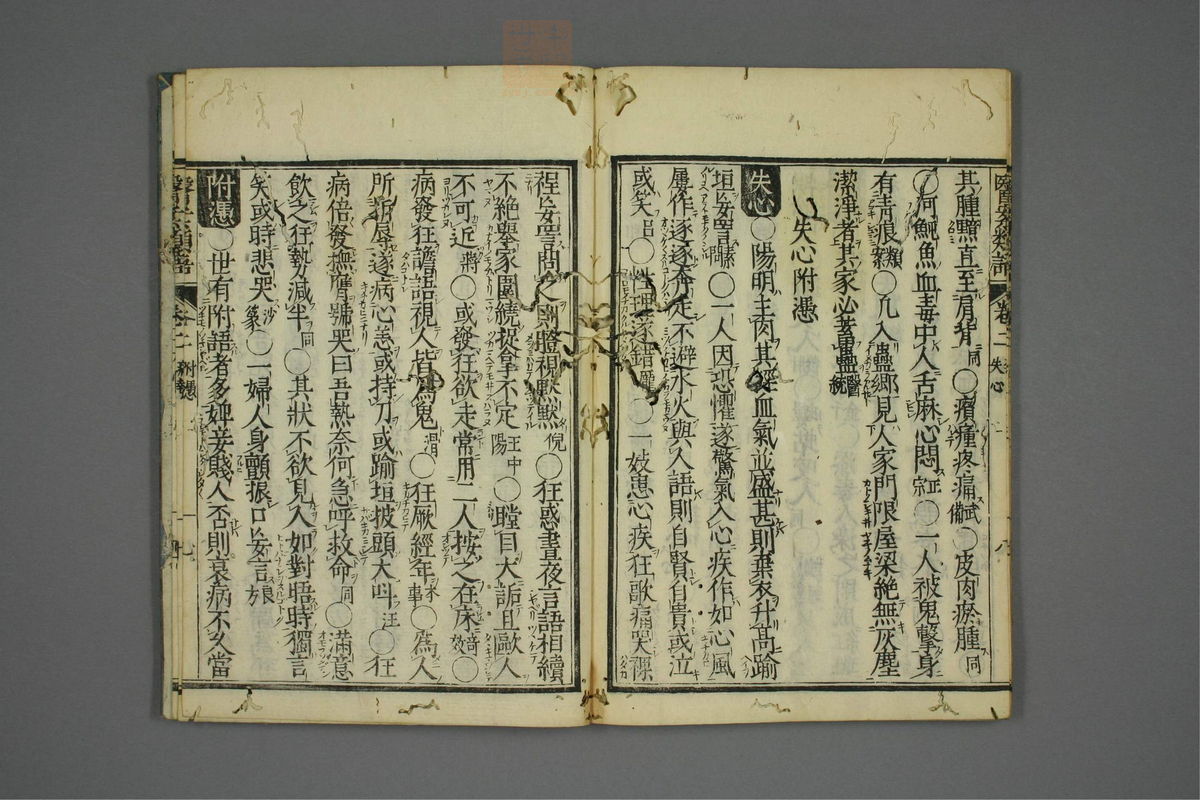 其腫黯直至肩背同〇瘡瘇疼痛武備〇皮肉瘀腫同
〇河魨魚血毒中人舌麻心悶正宗〇一人被鬼擊身
有青痕類雜〇凡入蠱郷見人家門限屋梁絶無灰塵
潔淨者其家必蓄蠱醫統
失心附憑
失心〇陽明主肉其經血氣並盛甚則棄衣升高踰
垣妄詈素問〇一人因恐懼遂驚氣入心疾作如心風
屢作逐逐奔走不避水火與人語則自賢自貴或泣
或笑呂〇性理遂錯〇一妓患心疾狂歌痛哭裸
裎妄詈問之則瞪視默默倪〇狂惑晝夜言語相續
不絶舉家圍繞捉拿不定王中陽〇瞠目大詬且歐人
不可近蔣〇或發狂欲走常用二人按之在床奇效〇
病發狂譫語視人皆為鬼滑〇狂厥經年本事〇為人
所折辱遂病心恙或持刀或踰垣披頭大呌汪〇狂
病倍發撫膺號哭曰吾熱奈何急呼救命同〇滿意
飲之狂勢減半同〇其狀不欲見人如對晤時獨言
笑或時悲哭沙篆〇一婦人身顫振口妄言痕
附憑〇世有附語者多婢妾賤人否則衰病不久當
卷二 失心 八
卷二 附憑 九